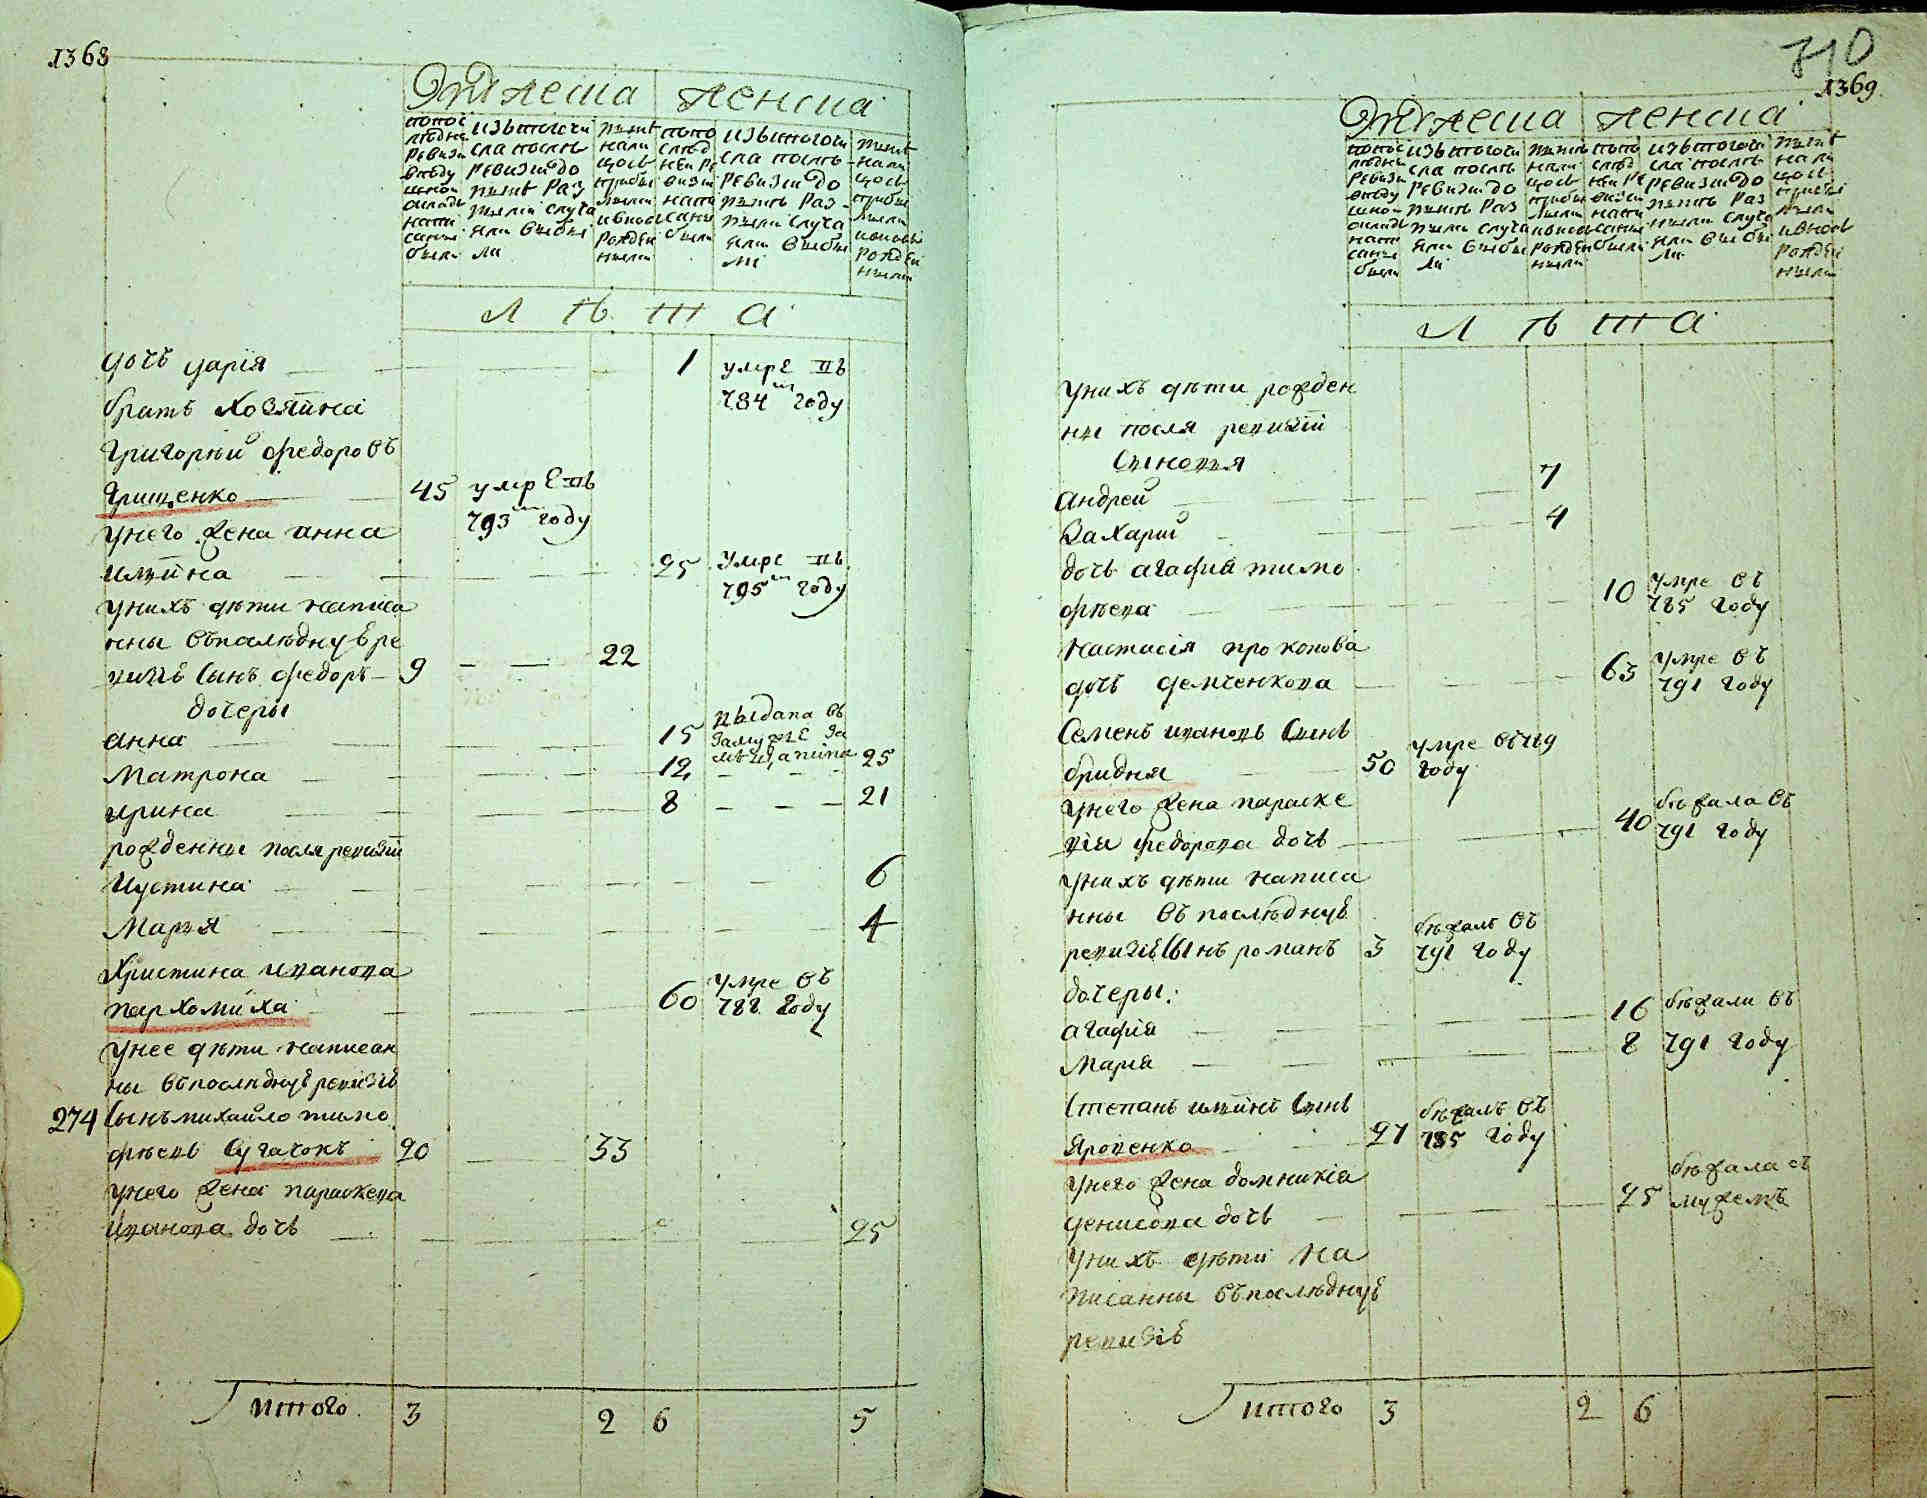 1368
мужеска женска
попос изъ того чи ныне попо изъ того чи ныне
ледне сла послѣ нали след сла послѣ нали
ревизи ревизии до щось ней ре ревизии до щось
Л Ѣ Т А
дочь дарія 1 умре въ
784м году
братъ хозяина
Григорьи федоровъ
Грищенко 45 умре въ
793м году
унего жена анна
илина 25 умре въ
795м году
унихъ дѣти написа
нны въпаследнуѣ ре
визіѣ сынъ федоръ 9 22
дочеры
анна 15 выдана въ замужѣ за
Матрона 12 25
ирина 8 21
рожденны после ревизіи
Иустина 6
Марья 4
Христина иванова
пархомиха 60 умре въ
788 году
унее дѣти написан
ны въпоследнуѣ ревизіѣ
274 Сынъ михайло тимо
фѣевъ Сугачокъ 20 33
унего жена параскева
иванова дочь 25
итого 3 2 6 5
710
1369
мужеска женска
попос изъ того чи ныне попо изъ того чи ныне
ледне сла послѣ нали след сла послѣ нали
ревизи ревизии до щось ней ре ревизии до щось
Л Ѣ Т А
унихъ дѣти рожден
ны после ревизіи
Сыновья
андрей 7
Захарий 4
дочь агафия тимо
фѣева 10 умре въ
785 году
настасія прокопова
дочь демченкова 63 умре въ
791 году
Семенъ ивановъ Сынъ
бридня 50 умре въ 789
году
унего жена параске
вія федорова дочь 40 бѣжала въ
791 году
унихъ дѣти написа
нны въ последнуѣ
ревизіѣ Сынъ романъ 3 бѣжалъ въ
791 году
дочеры:
агафія 16 бѣжали въ
Марія 8 791 году
Степанъ илинъ Сынъ
Яровенко 27 бѣжалъ въ
785 году
унего жена домникіа
денисова дочь 25 бѣжала съ
мужемъ
унихъ дѣти на
писанны въпоследнуѣ
ревизіѣ
итого 3 2 6 —